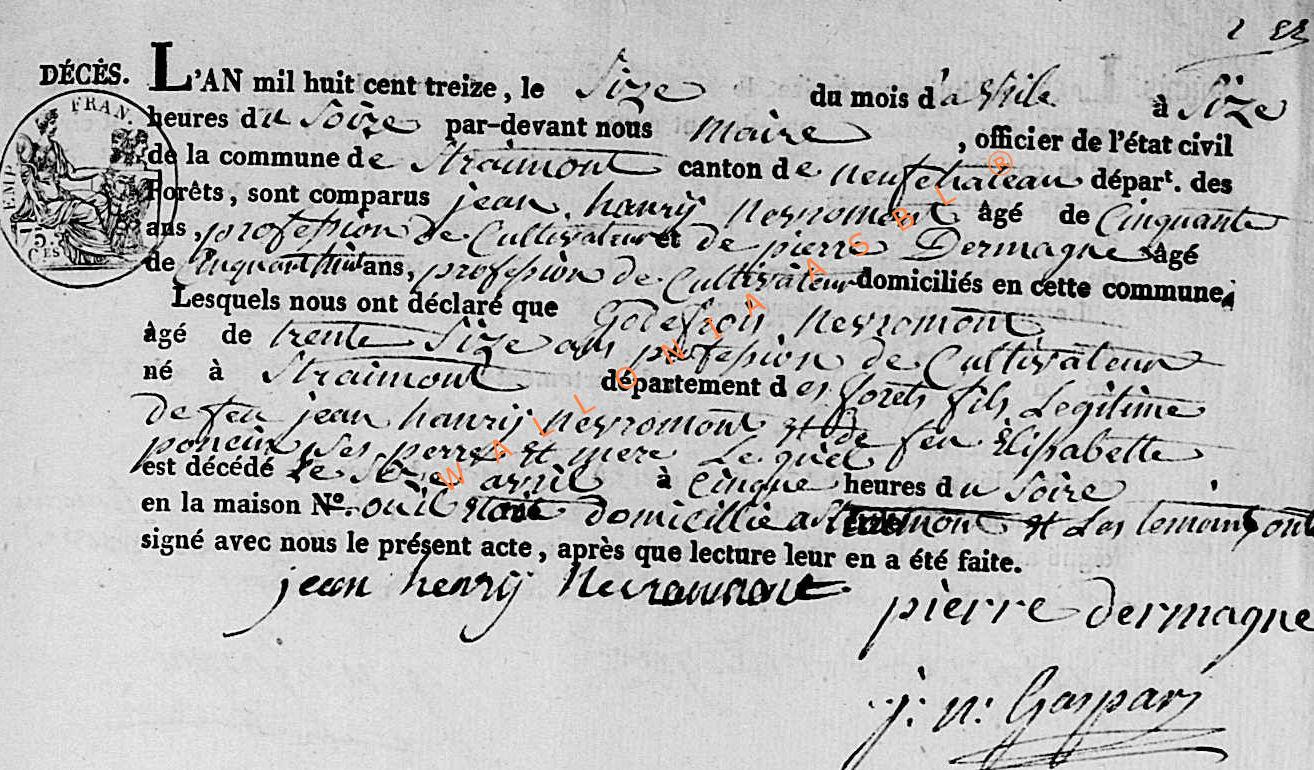 DÉCÈS. L'AN mil huit cent treize, le Size du mois d'avrile à Size
heures du Soize par-devant nous maire , officier de l'état civil
de la commune de Straimont canton de neufchateau départ. des
Forêts, sont comparus jean hanrij Neyromont âgé de Cinquante
ans, profession de Cultivateur et de pierre Dermagne âgé
de Cinquant huit ans, profession de Cultivateur domiciliés en cette commune.
Lesquels nous ont déclaré que Godefroij Neyromont
âgé de trente Size ans profession de Cultivateur
né à Straimont département des forets fils Legitime
de feu jean hanrij Neyromont et de feu Elisabette
ponceux ses perre et mere Le quel
est décédé Le Size avril à Cinque heures du Soire
en la maison No. ou il etoit domicillié a Straimont et Les temoins ont
signé avec nous le présent acte, après que lecture leur en a été faite.
jean henrij Neuromont pierre dermagne
j: n: Gaspar
FRAN.
75.
CES
WALLONIA ASBL ®